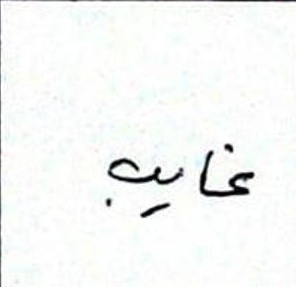 غايب